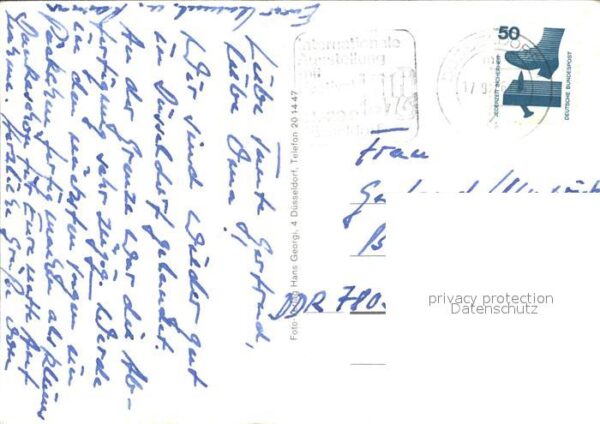 Liebe Tante Gertrud,
liebe Oma!
Wir sind wieder gut
in Düsseldorf gelandet.
An der Grenze war die Ab-
fertigung sehr zügig. Werde
in den nächsten Tagen ein
Päckchen fertig machen als kleines
Dankeschön für Eure nette Auf-
nahme. Herzliche Grüße von
Eurer u.
Foto Hans Georgi, 4 Düsseldorf, Telefon 20 14 47
Internationale
Ausstellung
50
JEDERZEIT SICHERHEIT
DEUTSCHE BUNDESPOST
17
Frau
DDR 780
privacy protection
Datenschutz